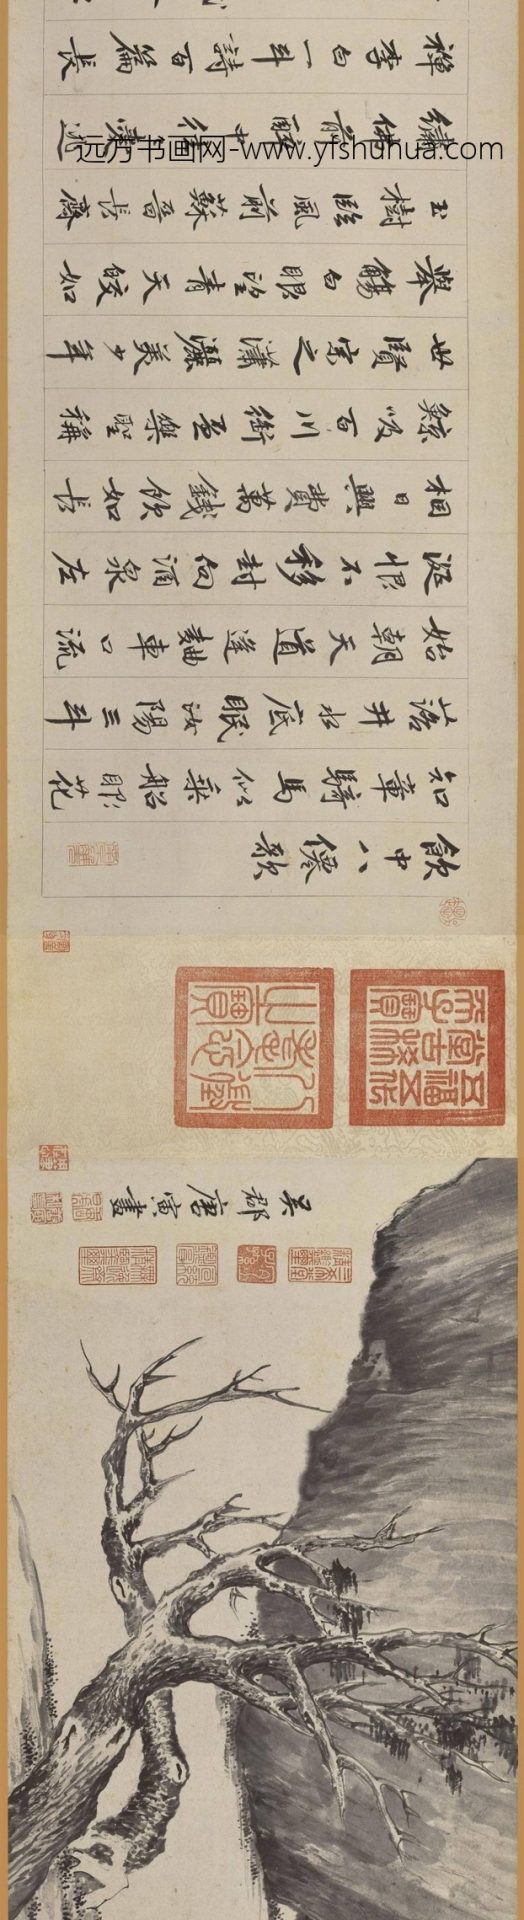 吳郡唐寅畫
三希堂精鑑璽
宜子孫
五福五代堂古稀天子寶
八徵耄念之寶
飲中八僊歌
知章騎馬似乘船眼花
落井水底眠汝陽三斗
始朝天道逢麴車口流
涎恨不移封向酒泉左
相日興費萬錢飲如長
鯨吸百川銜盃樂聖稱
世賢宗之瀟灑美少年
舉觴白眼望青天皎如
玉樹臨風前蘇晉長齋
繡佛前醉中往往愛逃
禪李白一斗詩百篇長
远方书画网-www.yfshuhua.com